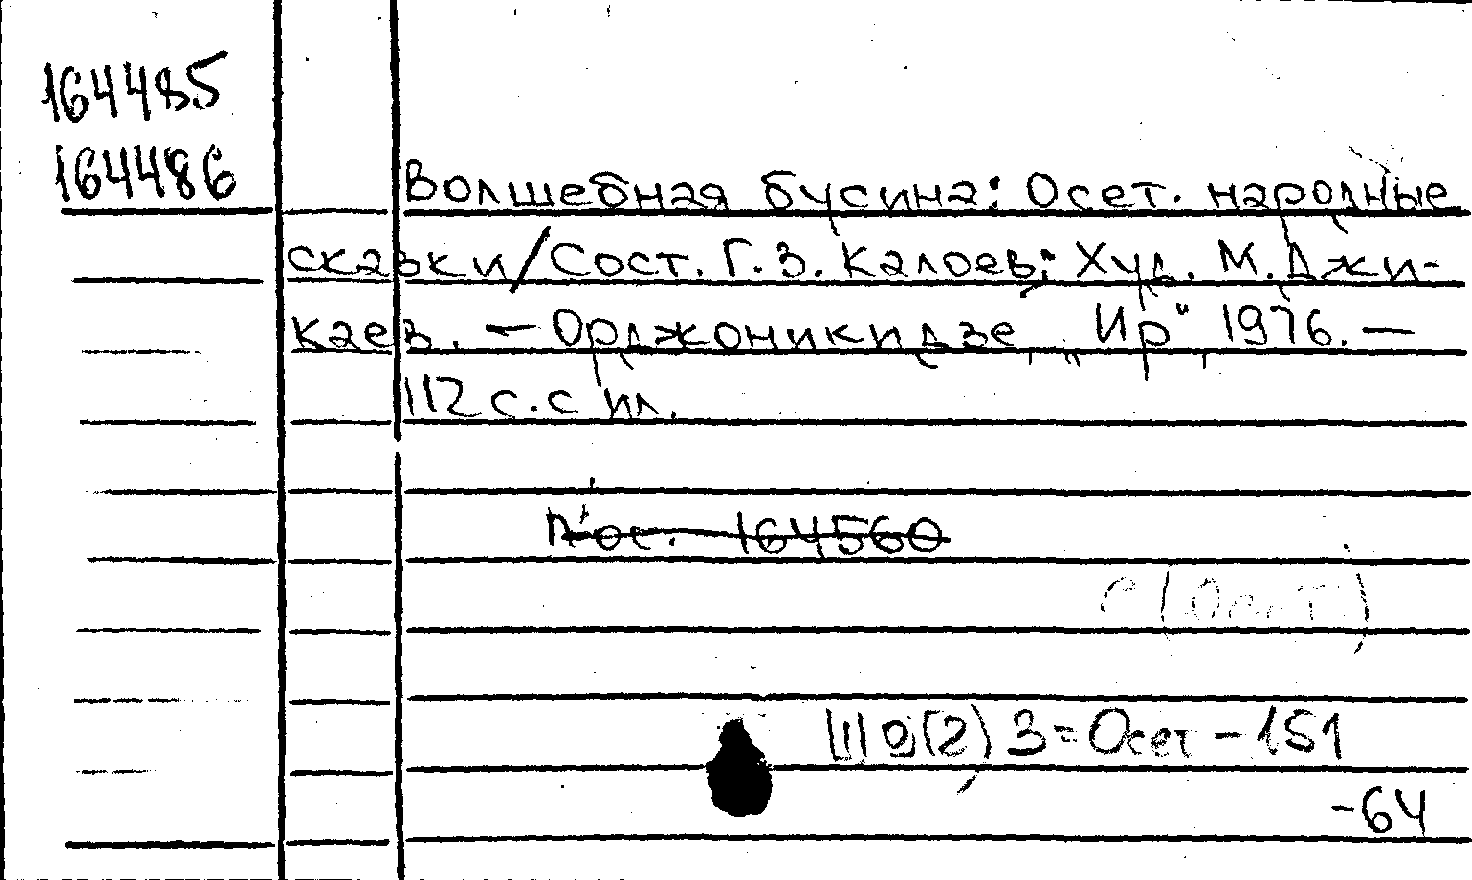 164485
164486
Волшебная бусина: Осет. народные
сказки/Сост. Г.З. Калоев; Худ. М. Джи-
каев. — Орджоникидзе, „Ир", 1976. —
112 с. с ил.
164560
С (Осет)
3=Осет-151
-64